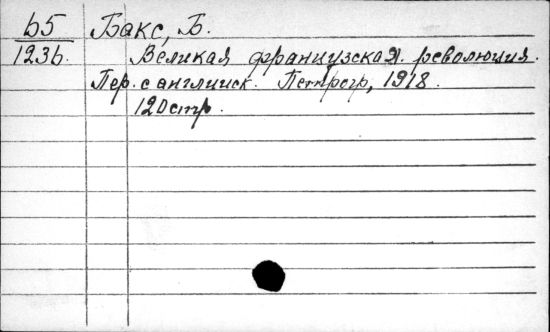 Б5 Бакс, Б.
123б. Великая французская революция.
Пер. с английск. Петрогр, 1918.
120стр.